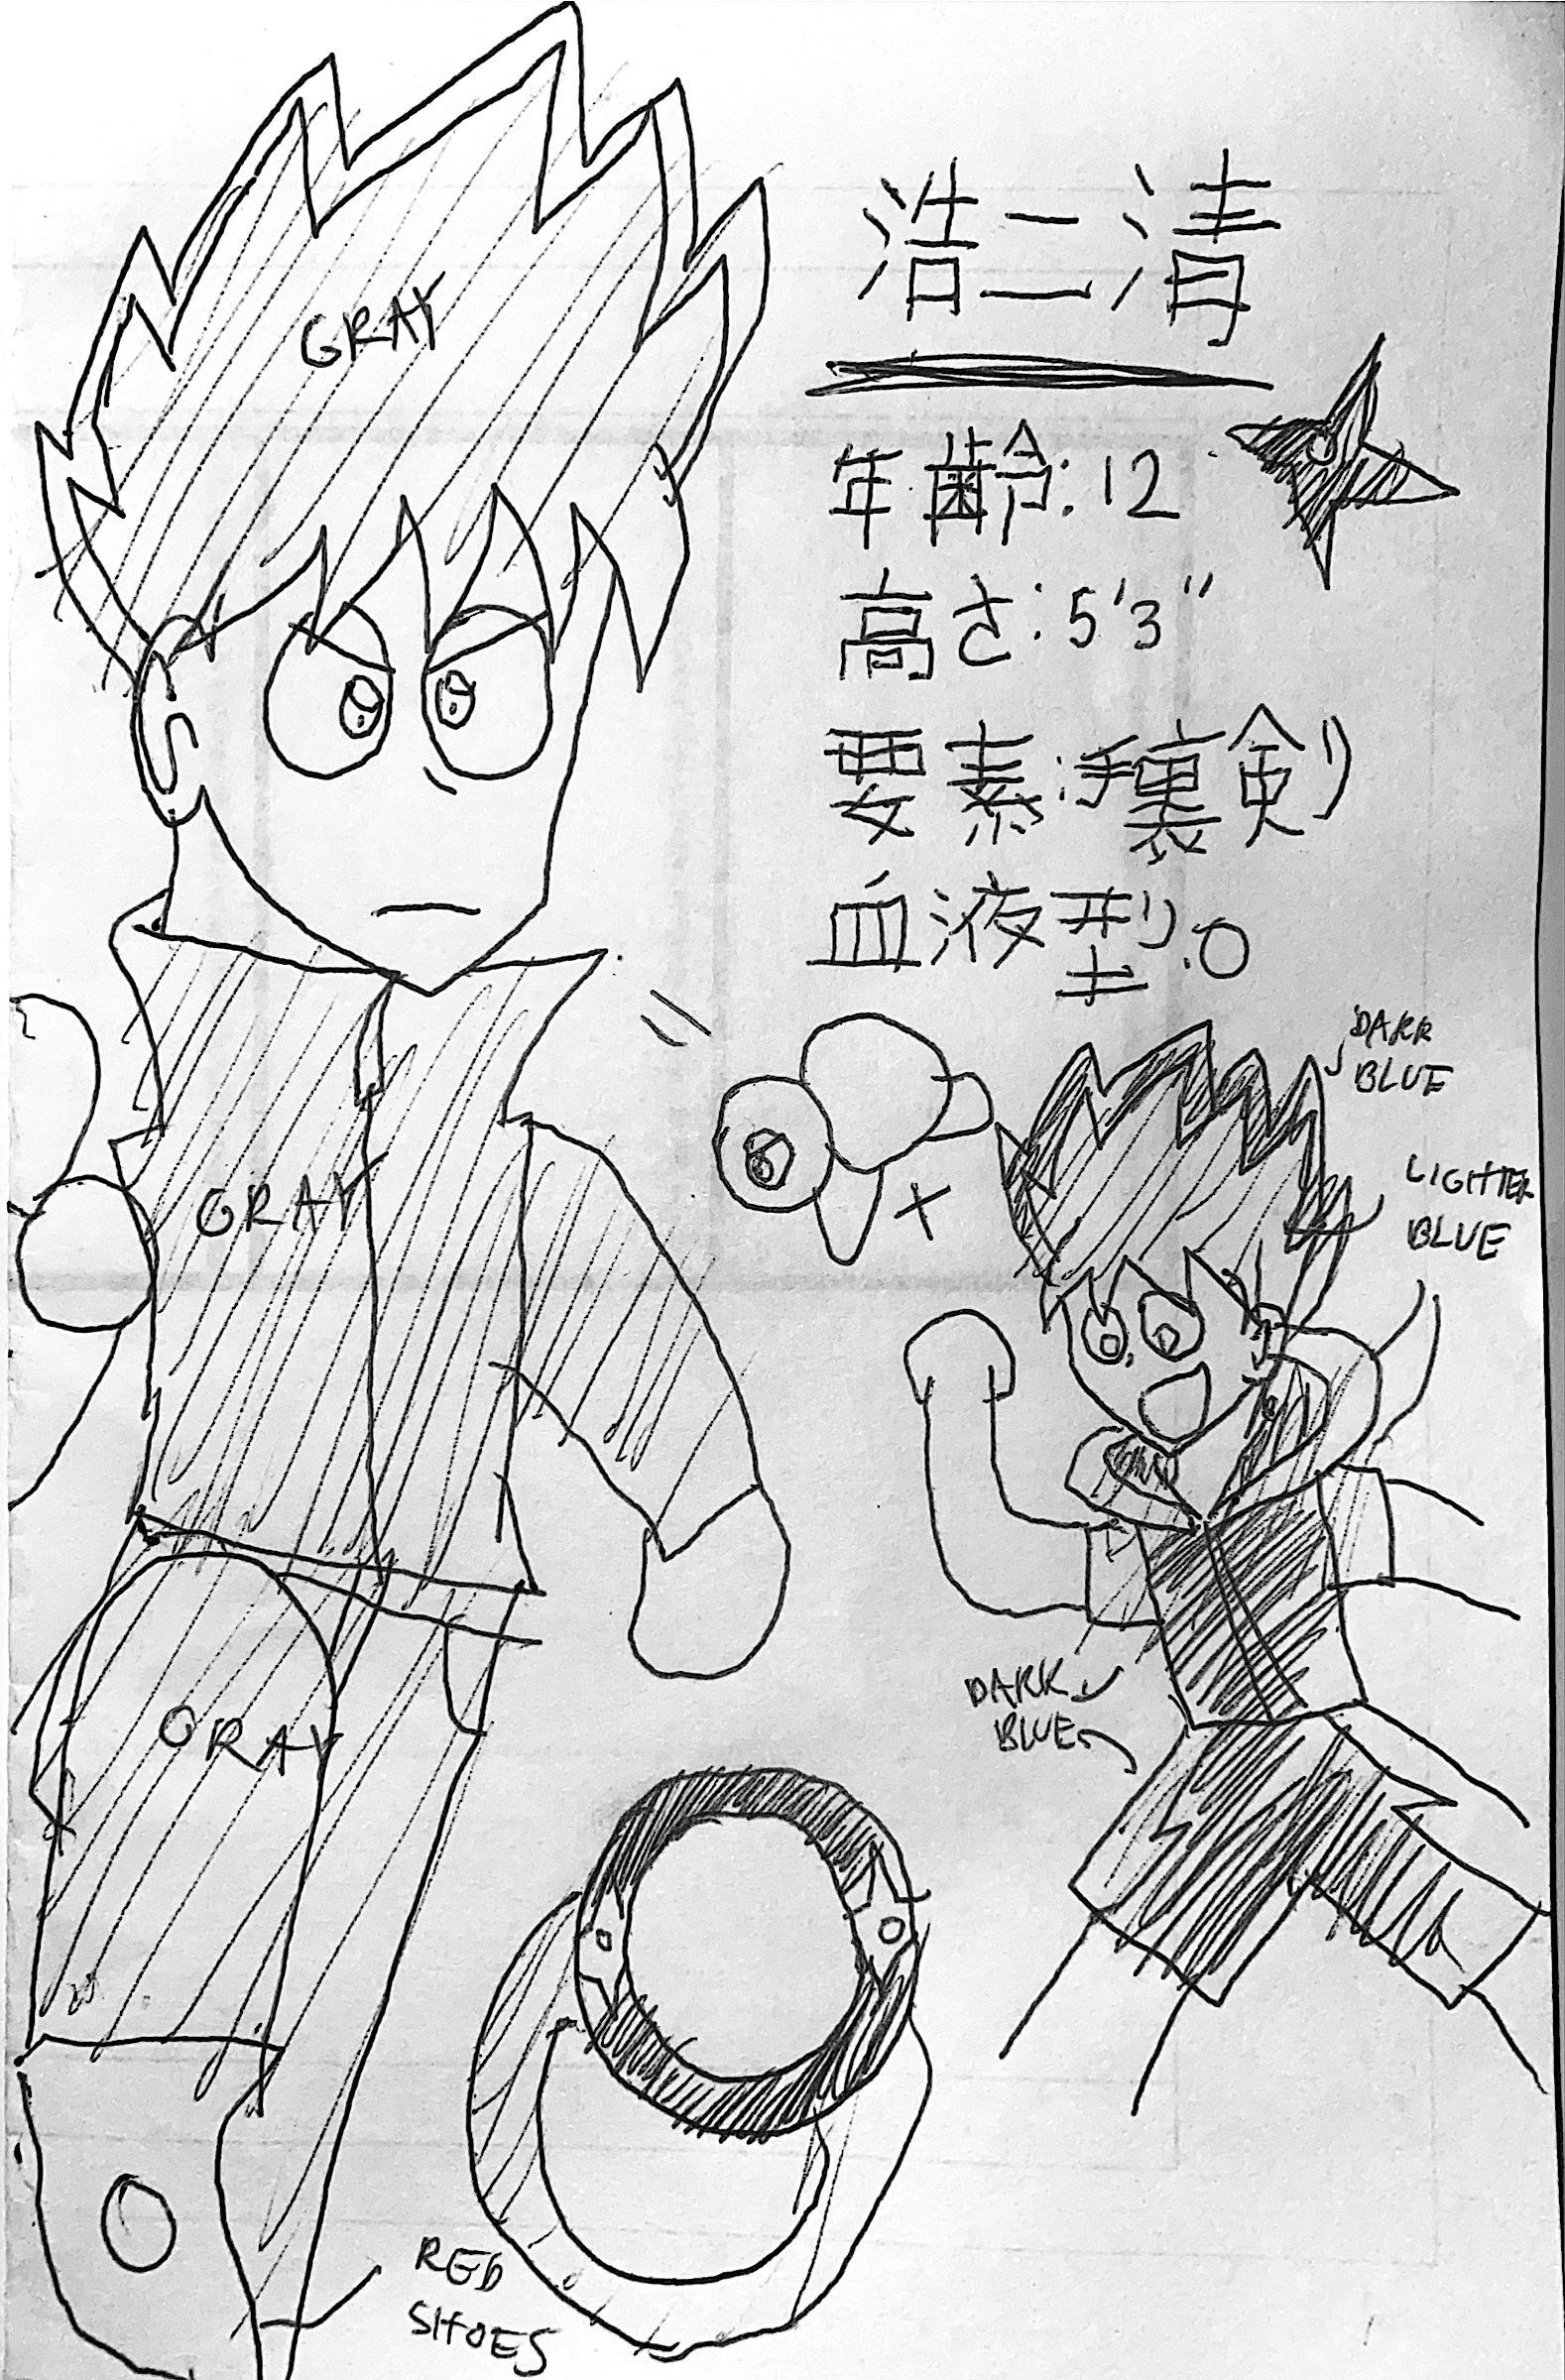 浩二清
年齢:12
高さ:5'3"
要素:手裏剣
血液型:O
GRAY
GRAY
GRAY
DARK
BLUE
LIGHTER
BLUE
DARK
BLUE
RED
SHOES